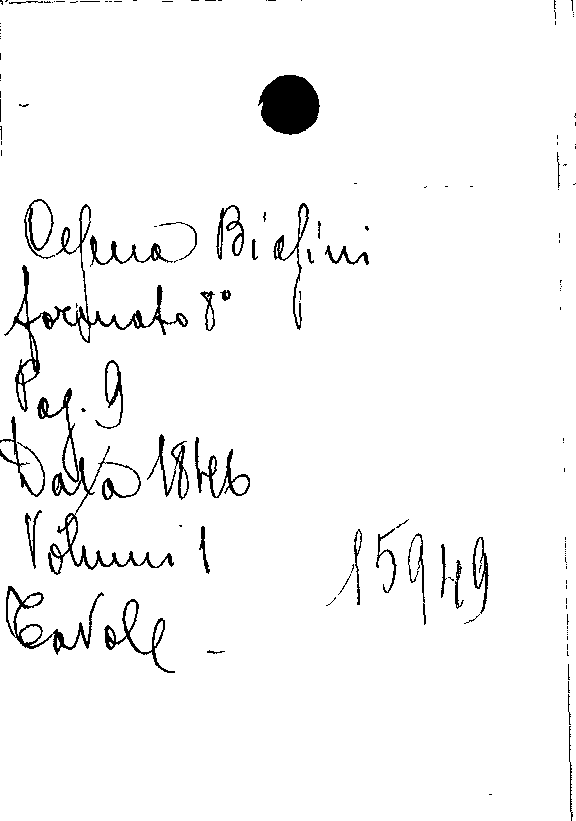 Cesena Biasini
formato 8°
Pag. 9
Data 1846
Volumi 1
15949
Tavole –